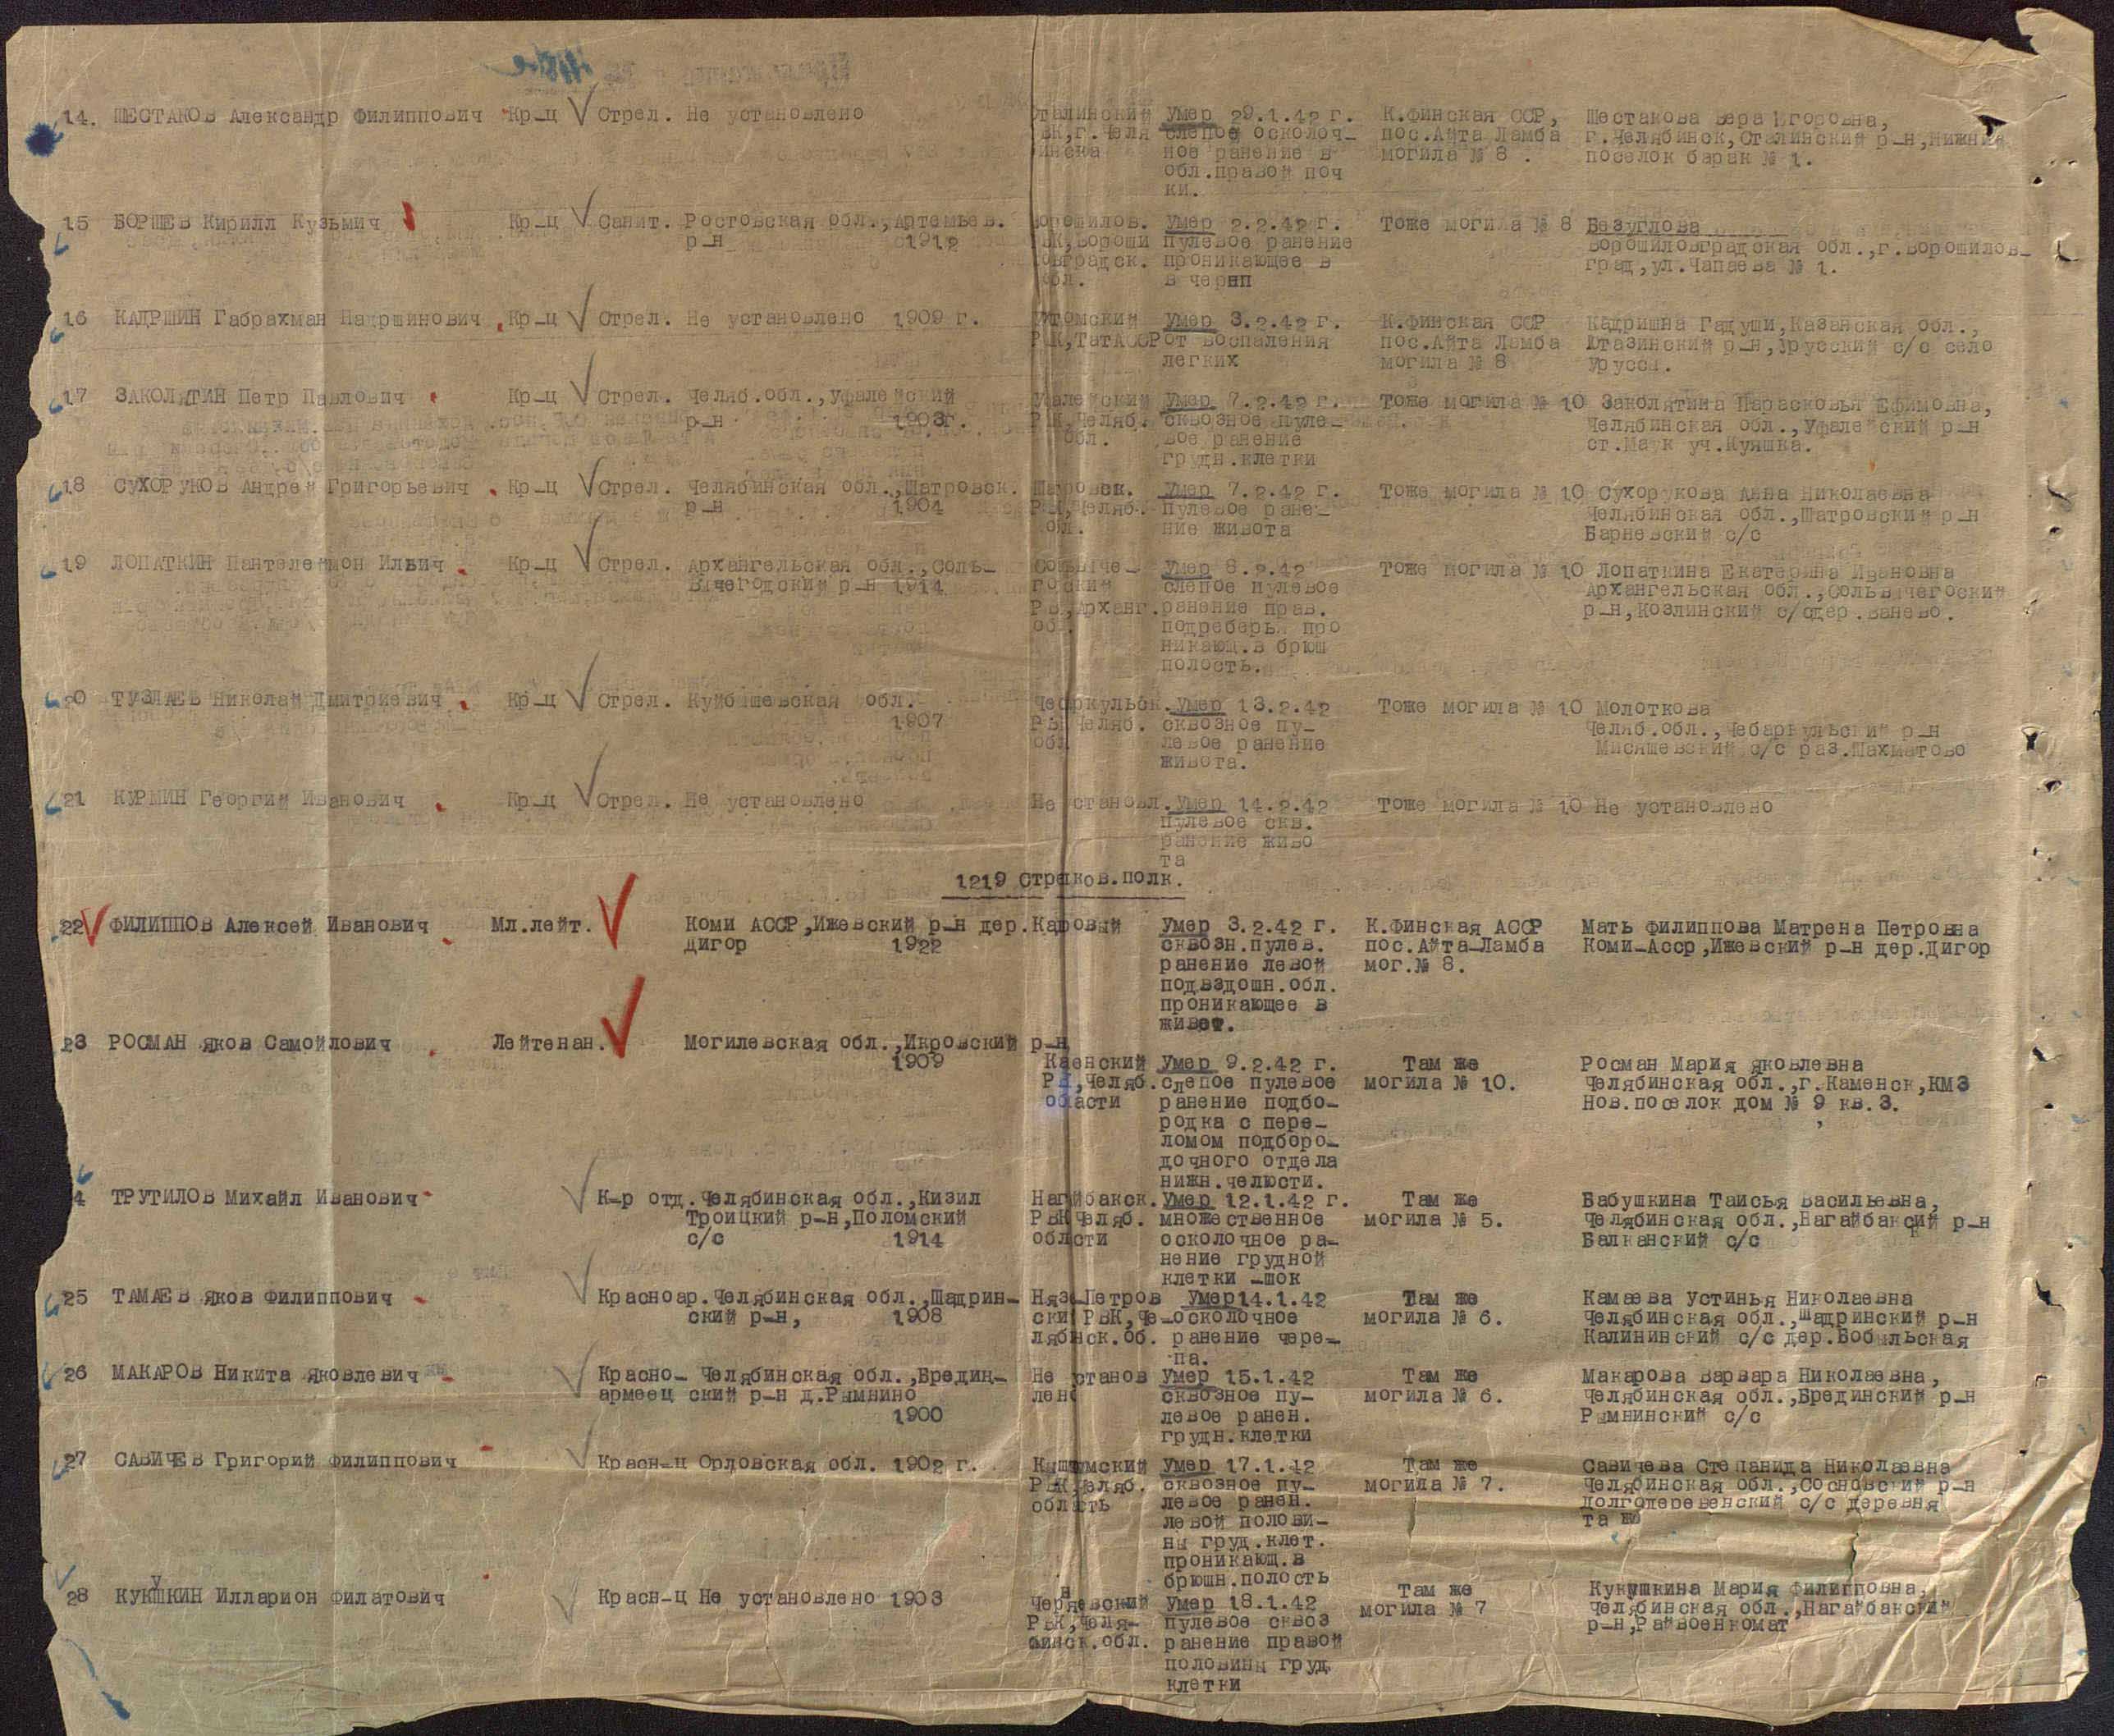 14. ШЕСТАКОВ Александр Филиппович Кр-ц Стрел. Не установлено Сталинский Умер 29.1.42 г. К.Финская ССР, Шестакова Вера Егоровна,
РВК,г.Челя слепое осколоч- пос.Айта Ламба г.Челябинск,Сталинский р-н,Нижний
бинска ное ранение в могила № 8 . поселок барак № 1.
обл.правой поч
ки.
15 БОРЩЕВ Кирилл Кузьмич Кр-ц Санит. Ростовская обл.,Артемьев. Ворошилов. Умер 2.2.42 г. Тоже могила № 8 Безуглова
р-н 1912 РВК,Вороши пулевое ранение Ворошиловградская обл.,г.Ворошилов-
ловградск. проникающее в град,ул.Чапаева № 1.
обл. в череп
16 КАДРШИН Габрахман Надршинович Кр-ц Стрел. Не установлено 1909 г. Умер 3.2.42 г. К.Финская ССР Кадришна Гадуши,Казанская обл.,
РВК,ТатАССР от воспаления пос.Айта Ламба Ютазинский р-н,Урусский с/с село
легких могила № 8 Уруссы.
17 ЗАКОЛЯТИН Петр Павлович Кр-ц Стрел. Челяб.обл.,Уфалейский Уфалейский Умер 7.2.42 г. Тоже могила № 10 Заколятина Парасковья Ефимовна,
р-н 1903г. РВК,Челяб. сквозное пуле- Челябинская обл.,Уфалейский р-н
обл. вое ранение ст.Маук уч.Куяшка.
грудн.клетки
18 СУХОРУКОВ Андрей Григорьевич Кр-ц Стрел. Челябинская обл.,Шатровск. Шатровск. Умер 7.2.42 г. Тоже могила № 10 Сухорукова Анна Николаевна
р-н 1904 РВК,Челяб. пулевое ране- Челябинская обл.,Шатровский р-н
обл. ние живота Барневский с/с
19 ЛОПАТКИН Пантелеймон Ильич Кр-ц Стрел. Архангельская обл.,Соль- Сольвыче- Умер 8.2.42 Тоже могила № 10 Лопаткина Екатерина Ивановна
Вычегодский р-н 1914 гоский слепое пулевое Архангельская обл.,Сольвычегоский
РВК,Арханг. ранение прав. р-н,Козлинский с/сдер.Ванево.
об. подреберья про
никающ.в брюш
полость.
20 ТУЗЛАЕВ Николай Дмитриевич Кр-ц Стрел. Куйбышевская обл. Чебаркульск. Умер 13.2.42 Тоже могила № 10 Молоткова
1907 РВК Челяб. сквозное пу- Челяб.обл.,Чебаркульский р-н
обл левое ранение Мисяшевский с/с раз.Шахматово
живота.
21 КУРМИН Георгий Иванович Кр-ц Стрел. Не установлено Не установл. Умер 14.2.42 Тоже могила № 10 Не установлено
пулевое скв.
ранение живо
та
1219 Стрелков.полк.
22 ФИЛИППОВ Алексей Иванович Мл.лейт. Коми АССР,Ижевский р-н дер. Кадровый Умер 3.2.42 г. К.Финская АССР Мать Филиппова Матрена Петровна
Дигор 1922 сквозн.пулев. пос.Айта-Ламба Коми-Асср,Ижевский р-н дер.Дигор
ранение левой мог.№ 8.
подвздошн.обл.
проникающее в
живот.
23 РОСМАН Яков Самойлович Лейтенан. Могилевская обл.,Икровский р-н
1909 Каменский Умер 9.2.42 г. Там же Росман Мария Яковлевна
РВК,Челяб. слепое пулевое могила № 10. Челябинская обл.,г.Каменск,КМЗ
области ранение подбо- Нов.поселок дом № 9 кв.3.
родка с пере-
ломом подборо-
дочного отдела
нижн.челюсти.
4 ТРУТИЛОВ Михайл Иванович К-р отд. Челябинская обл.,Кизил Нагайбакск. Умер 12.1.42 г. Там же Бабушкина Таисья Васильевна,
Троицкий р-н,Поломский РВК Челяб. множественное могила № 5. Челябинская обл.,Нагайбакский р-н
с/с 1914 области осколочное ра- Балканский с/с
нение грудной
клетки -шок
25 ТАМАЕВ Яков Филиппович Красноар. Челябинская обл.,Шадрин- Нязе Петров Умер14.1.42 Там же Камаева Устинья Николаевна
ский р-н, 1908 ский РВК,Че- осколочное могила № 6. Челябинская обл.,Шадринский р-н
лябинск.об. ранение чере- Калининский с/с дер.Бобыльская
па.
26 МАКАРОВ Никита Яковлевич Красно- Челябинская обл.,Бредин- Не установ Умер 15.1.42 Там же Макарова Варвара Николаевна,
армеец ский р-н д.Рымнино лено сквозное пу- могила № 6. Челябинская обл.,Брединский р-н
1900 левое ранен. Рымнинский с/с
грудн.клетки
27 САВИЧЕВ Григорий Филиппович Красн-ц Орловская обл. 1902 г. Кыштымский Умер 17.1.42 Там же Савичева Степанида Николаевна
РВК,Челяб. сквозное пу- могила № 7. Челябинская обл.,Сосновский р-н
область левое ранен. Долгодеревенский с/с деревня
левой полови- та же
ны груд.клет.
проникающ.в
брюшн.полость
28 КУКУШКИН Илларион Филатович Красн-ц Не установлено 1903 Чернявский Умер 18.1.42 Там же Кукушкина Мария Филипповна,
РВК,Челя- пулевое сквоз могила № 7 Челябинская обл.,Нагайбакский
бинск.обл. ранение правой р-н,Райвоенкомат
половины груд.
клетки